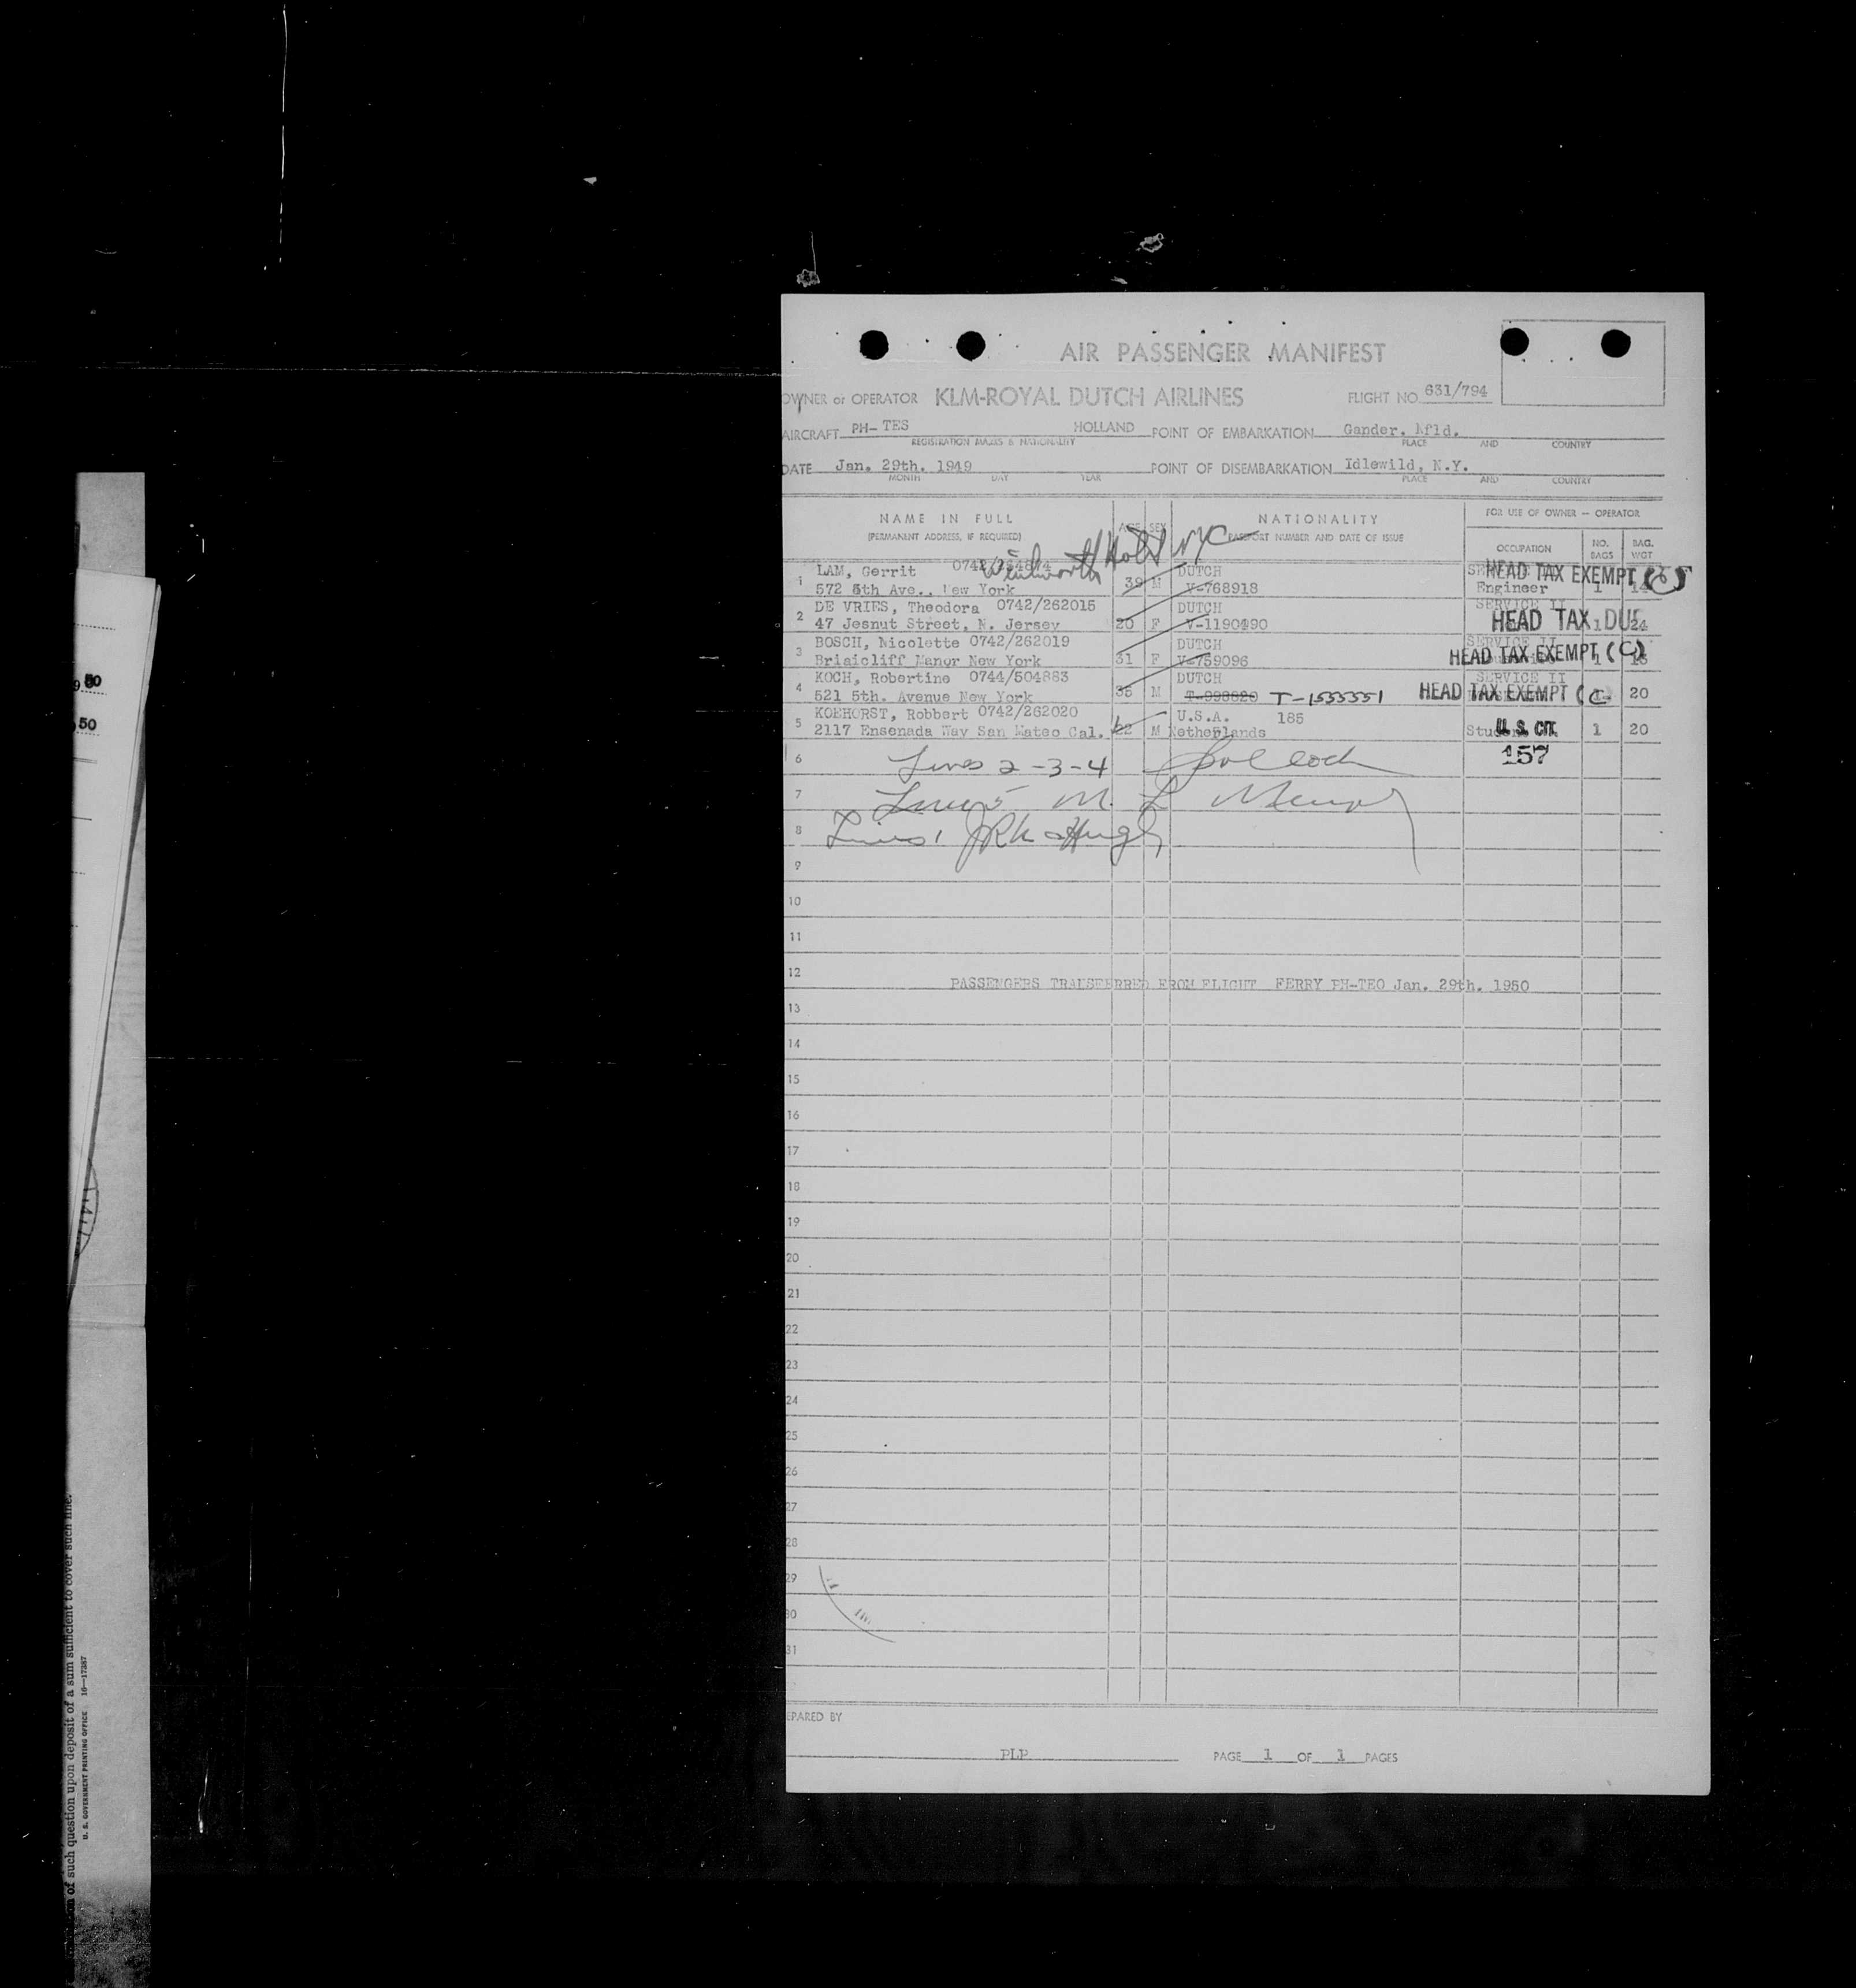 AIR PASSENGER MANIFEST
OWNER or OPERATOR KLM-ROYAL DUTCH AIRLINES FLIGHT NO. 631/794
AIRCRAFT PH- TES HOLLAND POINT OF EMBARKATION Gander. Nfld.
REGISTRATION MARKS & NATIONALITY PLACE AND COUNTRY
DATE Jan. 29th. 1949 POINT OF DISEMBARKATION Idlewild, N.Y.
MONTH DAY YEAR PLACE AND COUNTRY
NAME IN FULL AGE SEX NATIONALITY FOR USE OF OWNER — OPERATOR
(PERMANENT ADDRESS, IF REQUIRED) PASSPORT NUMBER AND DATE OF ISSUE OCCUPATION NO. BAGS BAG. WGT
Wentworth Hotel NYC
1 LAM, Gerrit DUTCH HEAD TAX EXEMPT
572 5th Ave., New York 39 M V-768918 Engineer 1
2 DE VRIES, Theodora 0742/262015 DUTCH SERVICE II
47 Jesnut Street, N. Jersey 20 F V-1190490 HEAD TAX DUE 1 24
3 BOSCH, Nicolette 0742/262019 DUTCH SERVICE II
Briaicliff Manor New York 31 F V-759096 HEAD TAX EXEMPT (C) 1
4 KOCH, Robertine 0744/504883 DUTCH SERVICE II
521 5th. Avenue New York 35 M T-998820 T-1555551 HEAD TAX EXEMPT (C 20
5 KOEHORST, Robbert 0742/262020 U.S.A. 185
2117 Ensenada Way San Mateo Cal. 22 M Netherlands Student U.S. CIT. 1 20
6 Lines 2-3-4 157
7 Line 5 M. L.
8 Lines 1
9
10
11
12
PASSENGERS TRANSFERRED FROM FLIGHT FERRY PH-TEO Jan. 29th. 1950
13
14
15
16
17
18
19
20
21
22
23
24
25
26
27
28
29
30
31
EPARED BY
PLP PAGE 1 OF 1 PAGES
50
50
of such question upon deposit of a sum sufficient to cover such fine.
U. S. GOVERNMENT PRINTING OFFICE 16—17387